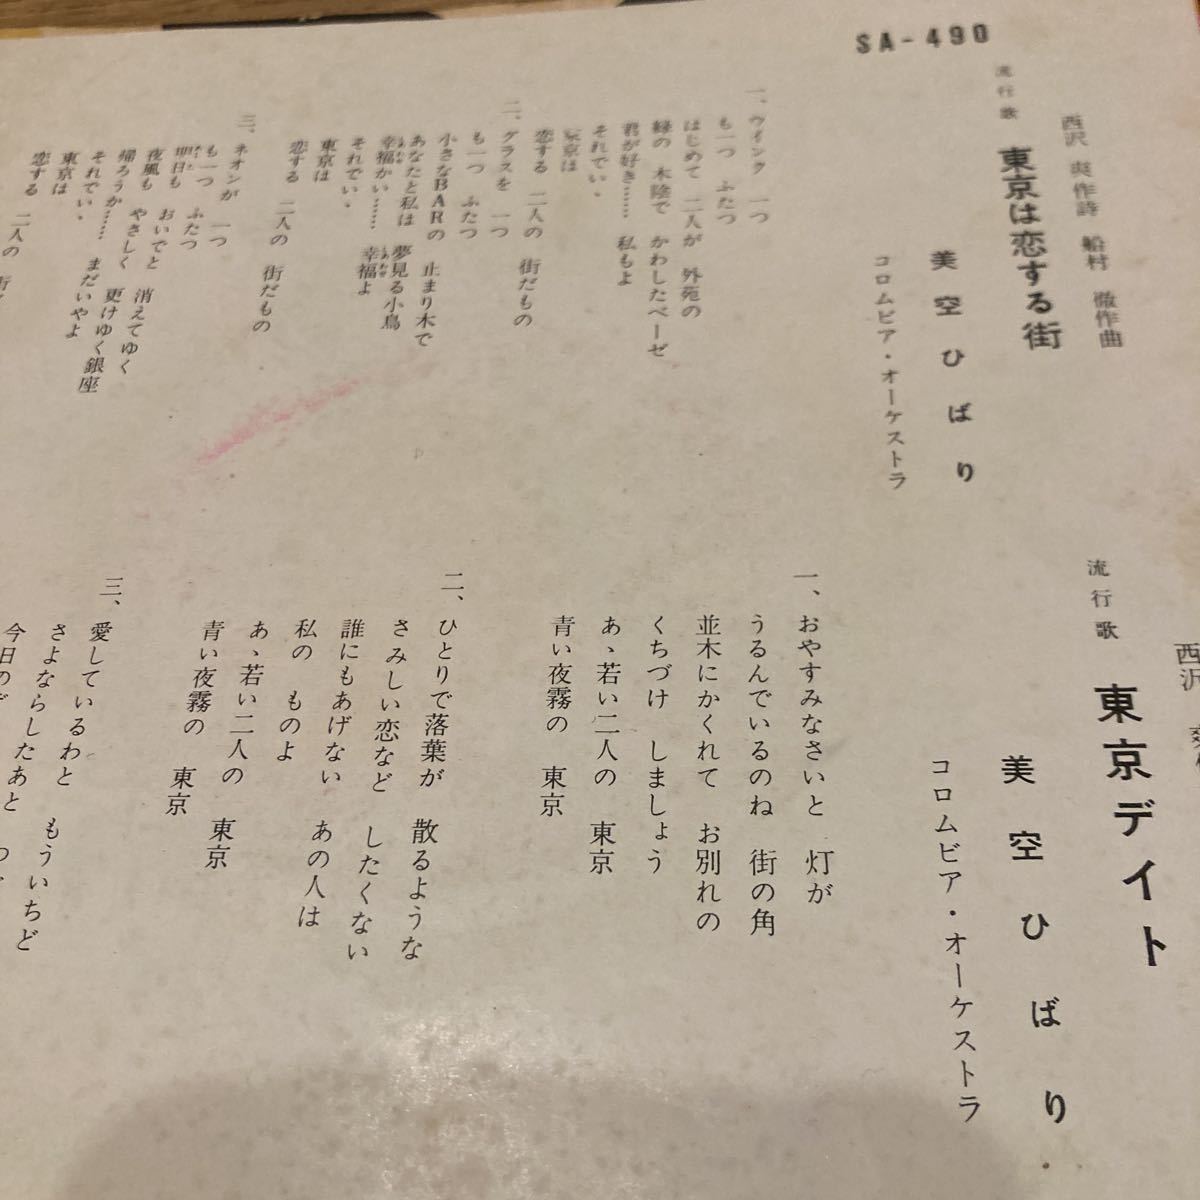 SA-490
西沢 爽 作詩 船村 徹 作曲
流行歌 東京は恋する街
美空ひばり
コロムビア・オーケストラ
一、ウインク 一つ
も一つ ふたつ
はじめて 二人が 外苑の
緑の 木陰で かわしたベーゼ
君が好き…… 私もよ
それでいゝ
東京は
恋する 二人の 街だもの
二、グラスを 一つ
も一つ ふたつ
小さなBARの 止まり木で
あなたと私は 夢見る小鳥
幸福かい…… 幸福よ
それでいゝ
東京は
恋する 二人の 街だもの
三、ネオンが 一つ
も一つ ふたつ
明日も おいでと 消えてゆく
夜風も やさしく 更けゆく銀座
帰ろうか…… まだいやよ
それでいゝ
東京は
恋する 二人の 街
西沢
流行歌 東京デイト
美空ひばり
コロムビア・オーケストラ
一、おやすみなさいと 灯が
うるんでいるのね 街の角
並木にかくれて お別れの
くちづけ しましょう
あゝ若い二人の 東京
青い夜霧の 東京
二、ひとりで落葉が 散るような
さみしい恋など したくない
誰にもあげない あの人は
私の ものよ
あゝ若い二人の 東京
青い夜霧の 東京
三、愛しているわと もういちど
さよならしたあと
今日の